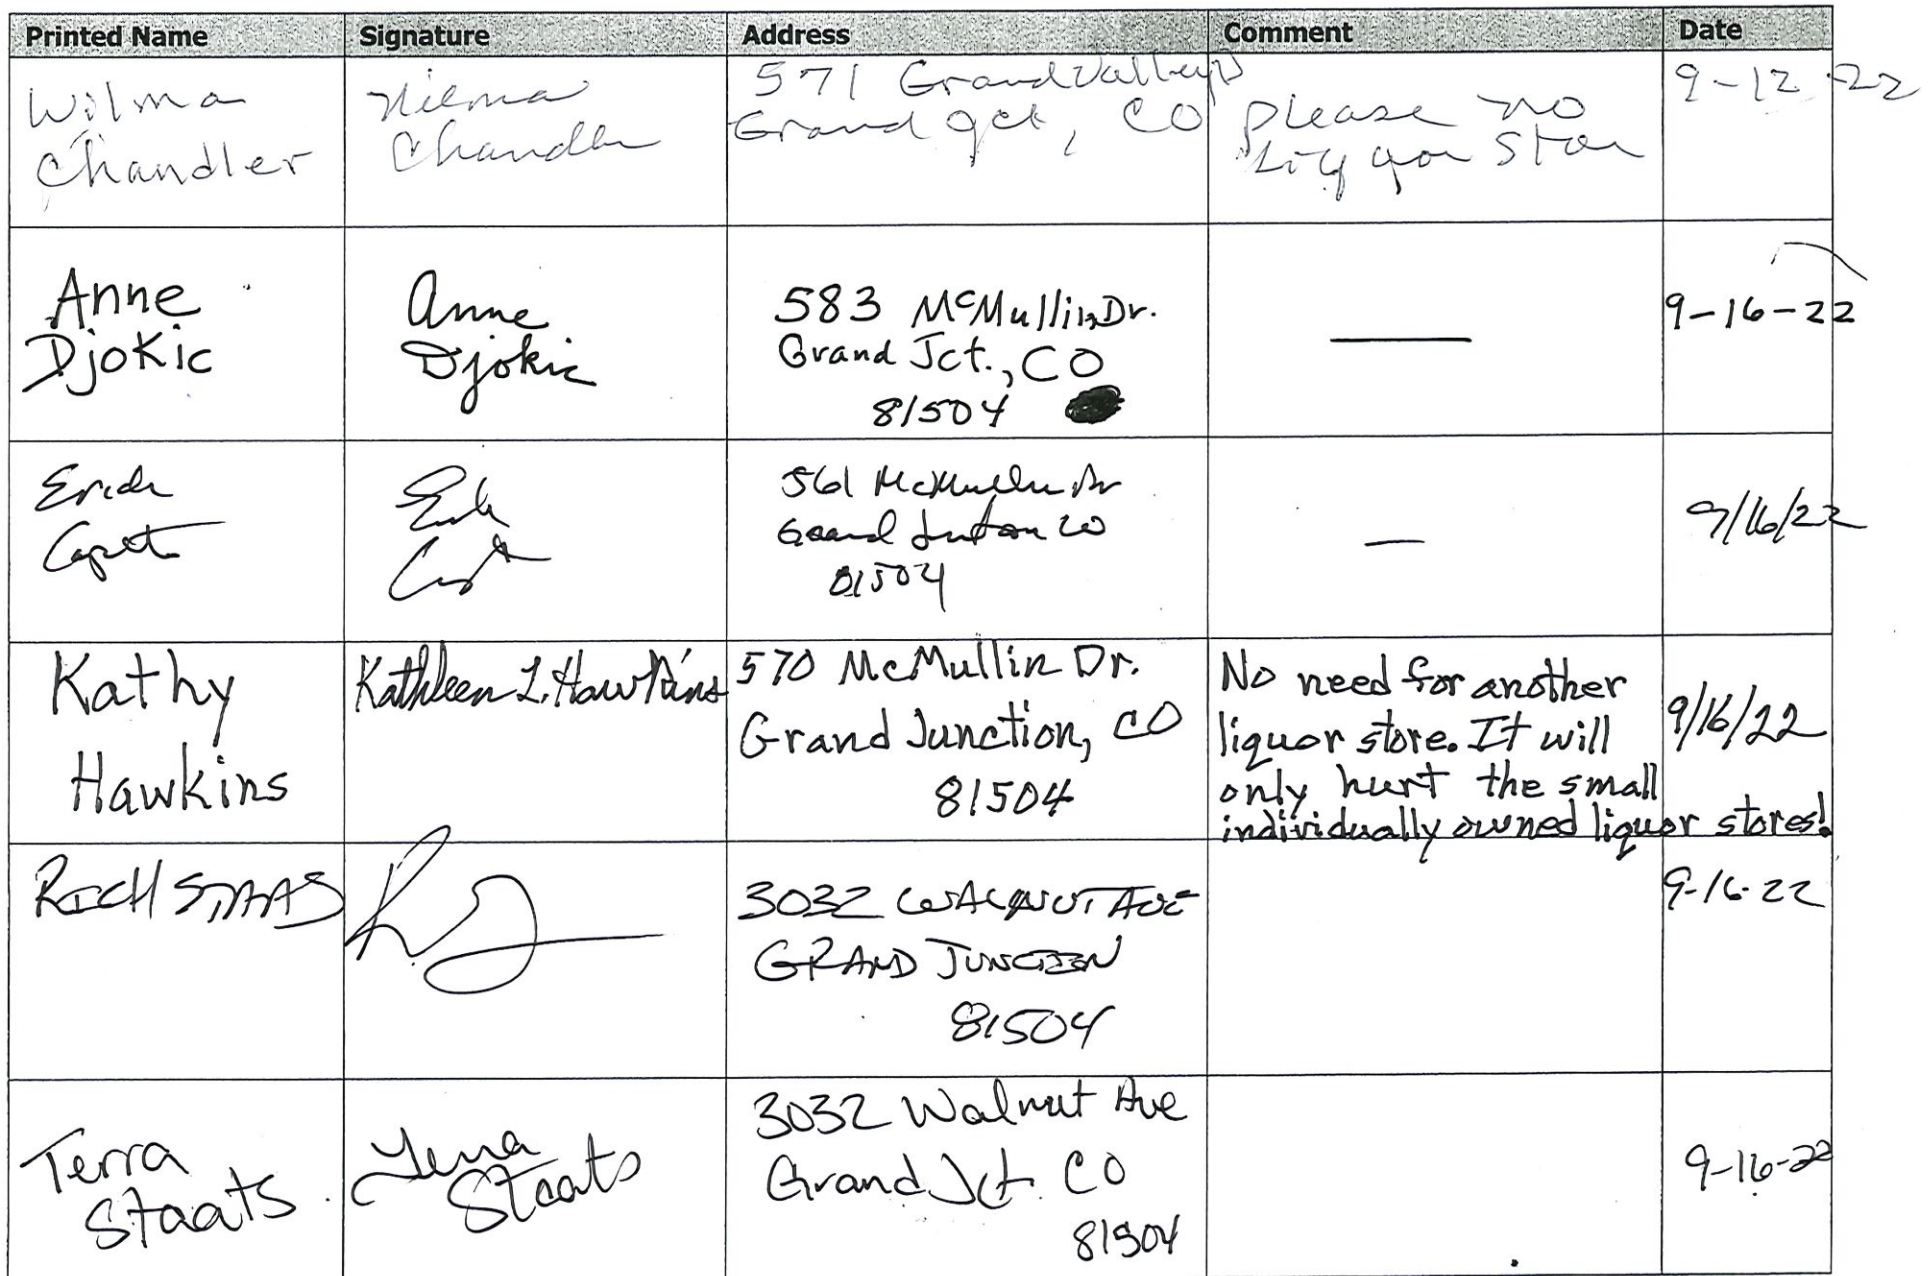 Printed Name Signature Address Comment Date
Wilma
Chandler
Wilma
Chandler
571 Grand Valley D
Grand Jct, CO
Please no
Liquor Stor
9-12-22
Anne
Djokic
Anne
Djokic
583 McMullin Dr.
Grand Jct., CO
81504
—
9-16-22
561 McMullin Dr
Grand Junction CO
81504
—
9/16/22
Kathy
Hawkins
Kathleen L. Hawkins
570 McMullin Dr.
Grand Junction, CO
81504
No need for another
liquor store. It will
only hurt the small
individually owned liquor stores!
9/16/22
RICH STAATS
3032 WALNUT AVE
GRAND JUNCTION
81504
9-16-22
Terra
Staats
Terra
Staats
3032 Walnut Ave
Grand Jct. CO
81504
9-16-22